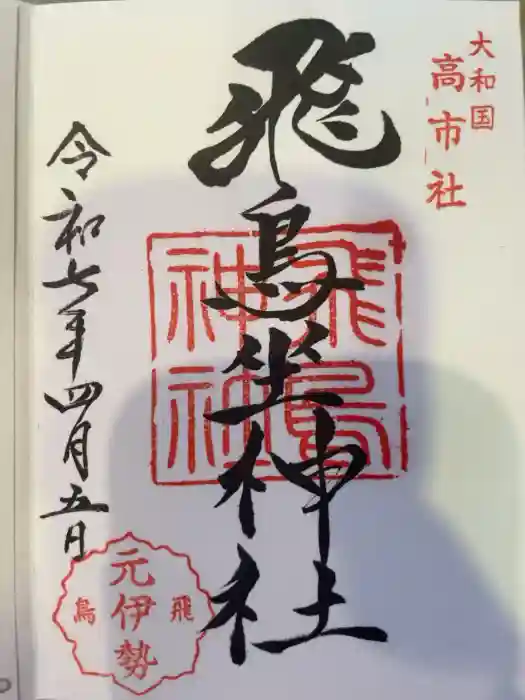 大和国
高市社
飛鳥坐神社
飛鳥
神社
令和七年四月五日
元伊勢
飛鳥